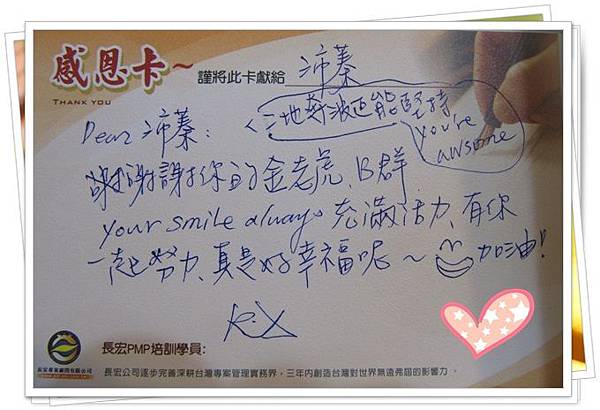 感恩卡~
THANK YOU
謹將此卡獻給 沛蓁
Dear 沛蓁:
三地奔波還能堅持
you're
awsome
謝謝謝你的金老虎、B群
your smile always 充滿活力、有你
一起努力、真是好幸福呢~ 加油!
長宏PMP培訓學員:
長宏專案顧問有限公司
長宏公司逐步完善深耕台灣專案管理實務界,三年內創造台灣對世界無遠弗屆的影響力。